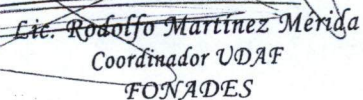 Lic. Rodolfo Martínez Mérida
Coordinador UDAF
FONADES